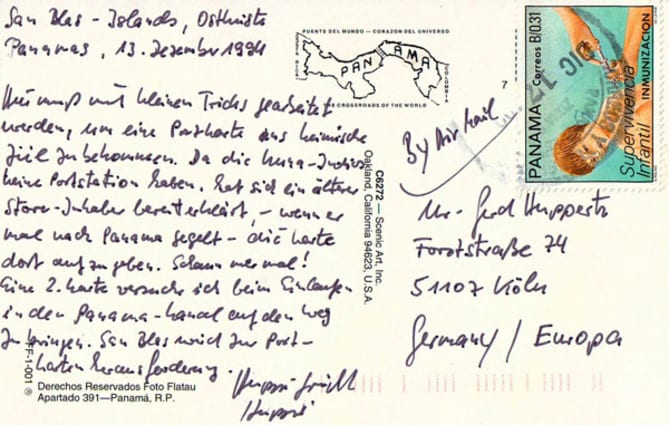 San Blas - Islands, Ostküste
Panamas, 13. Dezember 1994
Hier muß mit kleinen Tricks gearbeitet
werden, um eine Postkarte ins heimische
zu bekommen. Da die Kuna-Indios
keine Poststation haben, hat sich ein älterer
Store-Inhaber bereiterklärt, - wenn er
mal nach Panama segelt - die Karte
dort aufzugeben. Schaun mer mal!
Eine 2. Karte versuche ich beim Einlaufen
in den Panama-Kanal auf den Weg
zu bringen. San Blas wird zur Post-
karten herausforderung.
FF-1-001 ®
Derechos Reservados Foto Flatau
Apartado 391—Panamá, R.P.
PUENTE DEL MUNDO — CORAZON DEL UNIVERSO
PANAMA
COSTA RICA
COLOMBIA
THE CROSSROADS OF THE WORLD
7
C6272 — Scenic Art, Inc.
Oakland, California 94623, U.S.A.
PANAMA Correos B/0.31
Supervivencia
Infantil INMUNIZACION
DIC 17
By Air Mail
Mr. Gerd Huppertz
Forststraße 74
51107 Köln
Germany / Europa